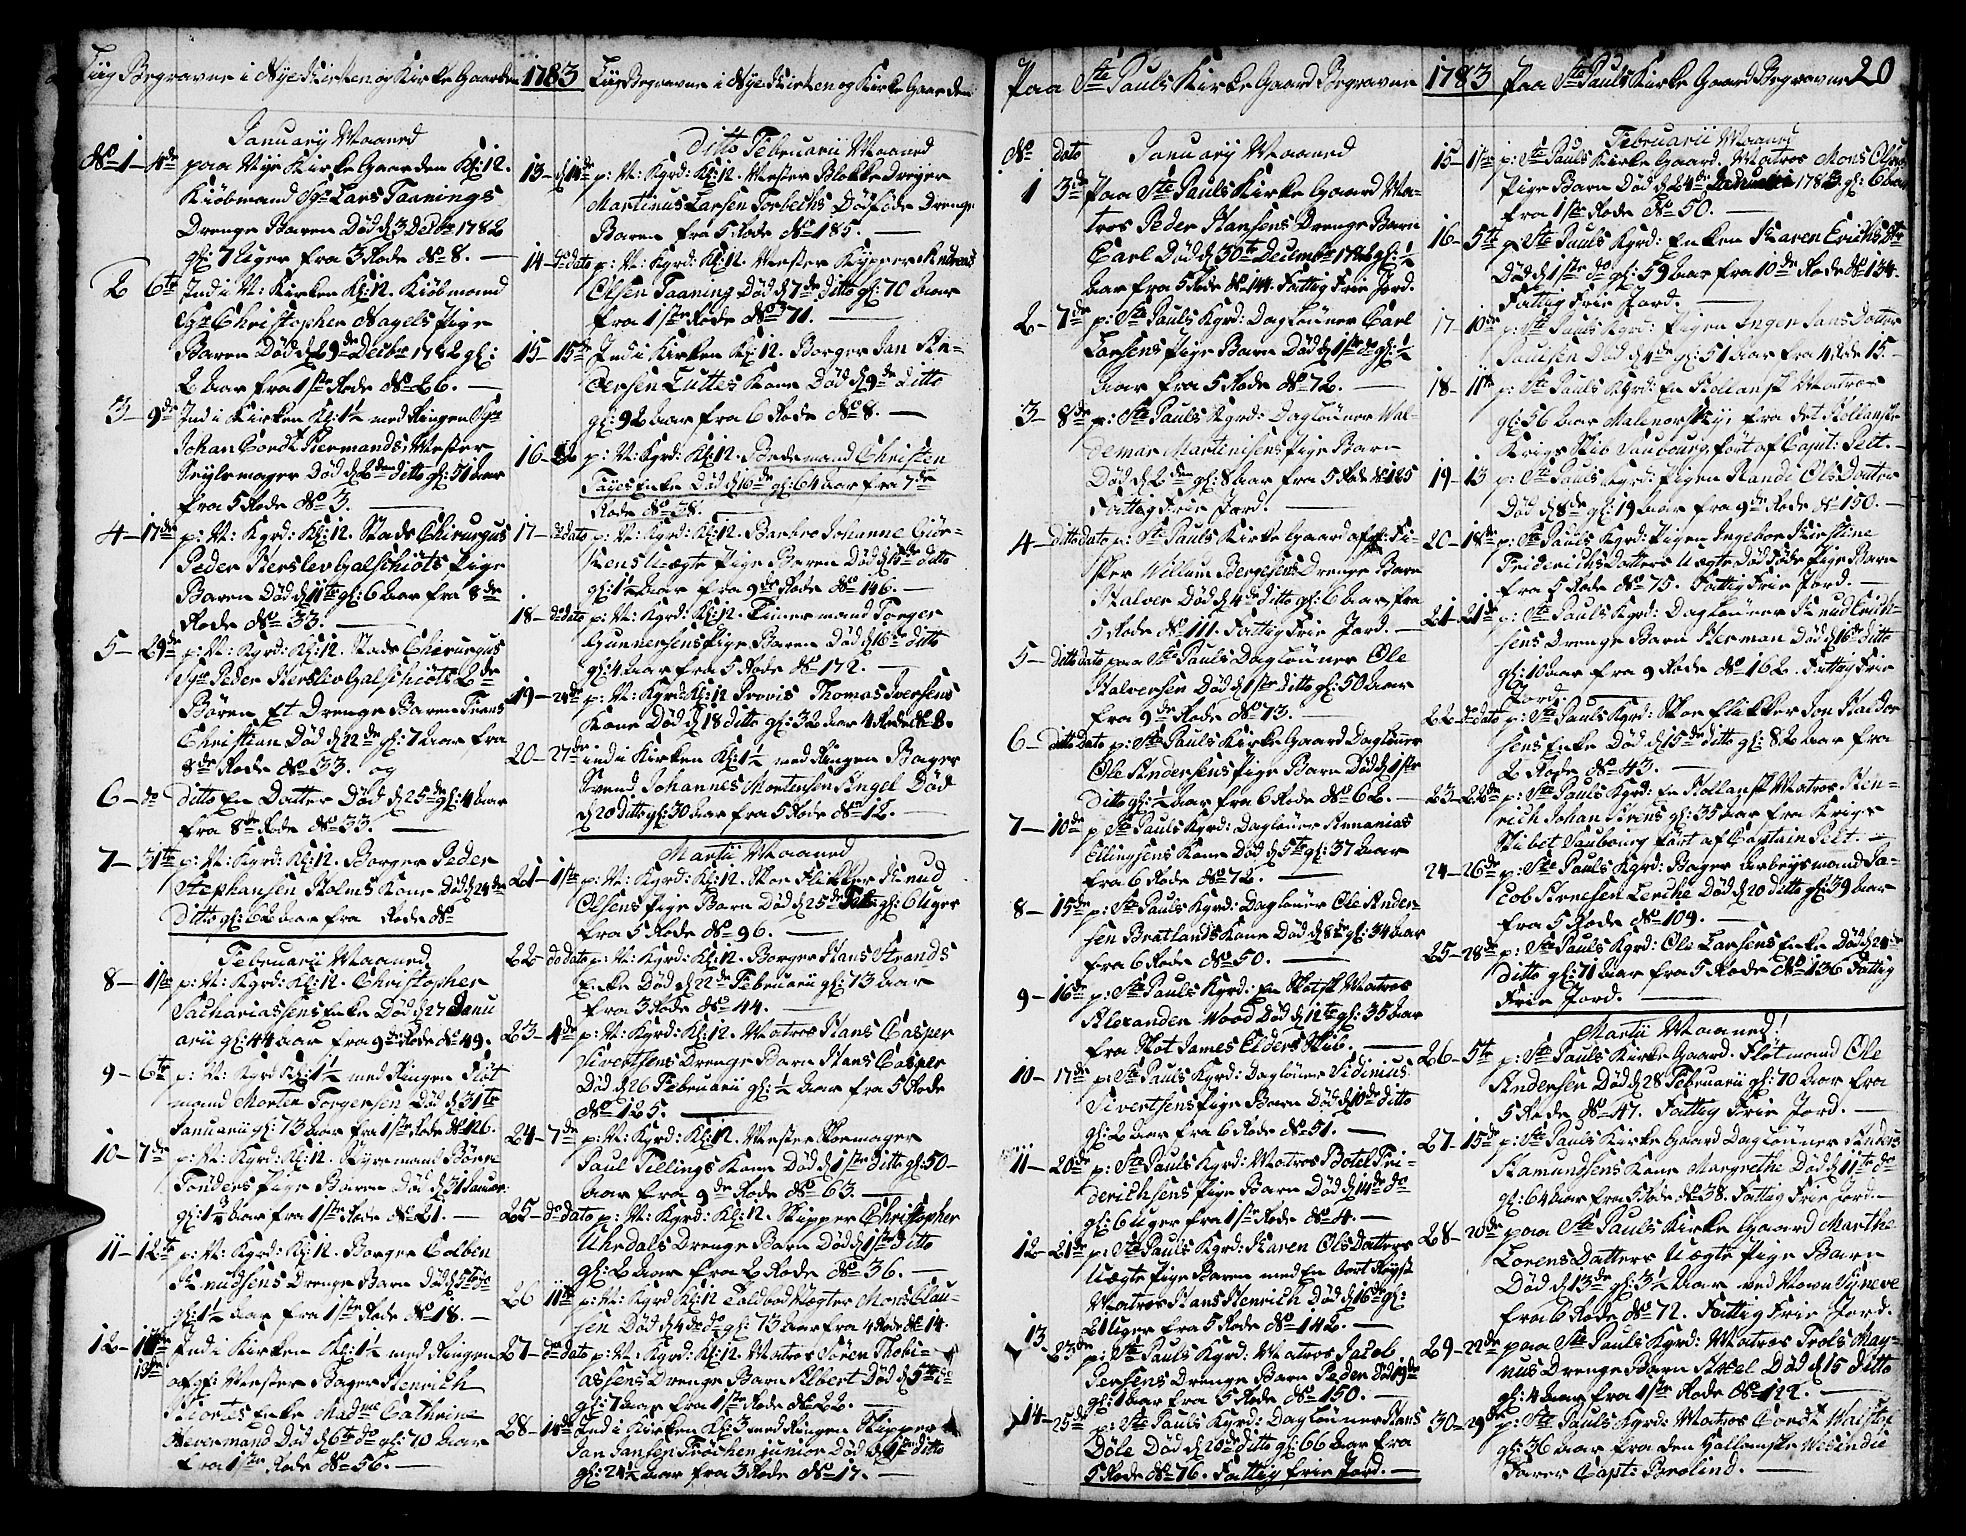 Liig Begravne i Nye Kirken og Kirke Gaarden
January Maaned
No 1 - 4de paa Nye Kirke Gaarden Kl: 12.
Kiøbmand Sr Lars Taanings
Drenge Baren Død d 3 Decbr 1782
gl: 7 Uger fra 3 Rode No 8. —
2 6te Ind i N: Kirken Kl: 12. Kiøbmand
Sr Christopher Nagels Pige
Baren Død d 29de Decbr 1782 gl:
2 Aar fra 1ste Rode No 26. —
3 - 9de Ind i Kirken Kl: 1½ med Ringen Sr
Johan Cordt Hiermands Mester
Seiglemager Død d 2den ditto gl: 51 Aar
fra 5 Rode No 3. —
4 - 17de p: N: Kgrd: Kl: 12. Stads Chirurgus
Peder Herslev Galschiøts Pige
Baren Død d 11te gl: 6 Aar fra 8de
Rode No 33. —
5 - 29de p: N: Kgrd: Kl: 12. Stads Chirurgus
Sr Peder Herslev Galschiøts 2de
Børen Et Drenge Baren Frans
Christian Død d 22de gl: 7 Aar fra
8de Rode No 33. og
6 - do ditto En Datter Død d 25de gl: 4 Aar
fra 8de Rode No 33. —
7 - 31te p: N: Kgrd: Kl: 12. Borger Peder
Stephansen Holms Kone Død d 24de
Ditto gl: 62 Aar fra Rode No
Februarii Maaned
8 - 1ste p: N: Kgrd: Kl: 12. Christopher
Sachariassens Enke Død d 27 Janu
arii gl: 44 Aar fra 9de Rode No 49.
9 - 6te p: N: Kgrd Kl: 1½ med Ringen Fløt
mand Morten Torgersen Død d 31te
Januarii gl: 73 Aar fra 1ste Rode No 126.
10 - 7de p: N: Kgrd: Kl: 12. Styremand Børre
Tønders Pige Baren Død d 31 Januar
gl: 1¾ Aar fra 1ste Rode No 21. —
11 - 12te p: N: Kgrd: Kl: 12. Borger Colben
Knudsens Drenge Barn Død d 5te do
gl: 1½ Aar fra 1ste Rode No 18. —
12 - 13de Ind i Kirken Kl: 1½ med Ringen
afg: Mester Bager Henrich
Hiortes Enke Madme Cathrine
Nevermand Død d 6te do gl: 70 Aar
fra 1ste Rode No 56. —
1783 Liig Begravne i Nye Kirken og Kirke Gaarden
Ditto Februarii Maaned
13 - d 14de p: N: Kgrd: Kl: 12. Mester Blokke Dreyer
Martinus Larsen Torbechs Dødføde Drenge
Baren fra 5 Rode No 185. —
14 - do dato p: N: Kgrd: Kl: 12. Mester Kypper Andreas
Olsen Taaning Død d 7de ditto gl: 70 Aar
fra 1ste Rode No 71. —
15 - 15de Ind i Kirken Kl: 12. Borger Jan An-
dersen Luttes Kone Død d 9de ditto
gl: 92 Aar fra 6 Rode No 8. —
16 - 22 p: N: Kgrd: Kl: 12. Bedemand Christen
Fayes Enke Død d 16de gl: 64 Aar fra 7de
Rode No 38. —
17 - do dato p: N: Kgrd: Kl: 12. Barbro Johanne Giør-
kens Uægte Pige Baren Død d 15de ditto
gl: 1½ Aar fra 9de Rode No 146. —
18 - do dato p: N: Kgrd: Kl: 12. Timermand Torger
Gunnersens Pige Baren Død d 16de ditto
gl: 4 Aar fra 5 Rode No 172. —
19 - 24de p: N: Kgrd: Kl: 12 Provis Thomas Iversens
Kone Død d 18 ditto gl: 32 Aar 4 Rode No 8.
20 - 27de ind i Kirken Kl: 1½ med Ringen Bager
Svend Johannes Mortensen Engel Død
d 20 ditto gl: 30 Aar fra 5 Rode No 12. —
Martii Maaned
21 - 1ste p: N: Kgrd: Kl: 12. Skoe Flikker Knud
Olsens Pige Barn Død d 25de Feb: gl: 6 Uger
fra 5 Rode No 96. —
22 - do dato p: N: Kgrd: Kl: 12. Borger Hans Strands
Enke Død d 22de Februarii gl: 73 Aar
fra 3 Rode No 44. —
23 - 4de p: N: Kgrd: Kl: 12. Matros Hans Casper
Sivertsens Drenge Barn Hans Casper
Død d 26 Februarii gl: ½ Aar fra 5 Rode
No 125. —
24 - 7de p: N: Kgrd: Kl: 12. Mester Skoemager
Paul Tellings Kone Død d 1ste ditto gl: 50 -
Aar fra 9de Rode No 63. —
25 - do dato p: N: Kgrd: Kl: 12. Skipper Christopher
Uhrdals Drenge Barn Død d 1ste ditto
gl: 2 Aar fra 2 Rode No 36. —
26 11te p: N: Kgrd Kl: 12 Toldbod Vægter Mons Clau-
sen Død d 4de do gl: 73 Aar fra 4 Rode No 14.
27 - do dato p: N: Kgrd: Kl: 12. Matros Søren Thobi-
assens Drenge Barn Albert Død d 5te do
gl: 7 Aar fra 1ste Rode No 22. —
28 - 14de Ind i Kirken Kl: 3 med Ringen Skipper
Jan Jansen Frochen junior Død d 4de ditto
gl: 24½ Aar fra 3 Rode No 17. —
Paa Ste Pauls Kirke Gaard Begravne
No dato January Maaned
1 3de Paa Ste Pauls Kirke Gaard Ma-
tros Peder Hansens Drenge Barn
Carl Død d 30te Decembr 1782 gl: ½
Aar fra 5 Rode No 144. Fattig Frie Jord.
2 - 7de p: Ste Pauls Kgrd: Dagløuner Carl
Larsens Pige Barn Død d 1ste do gl: ½
Aar fra 5 Rode No 72. —
3 - 8de p: Ste Pauls Kgrd: Dagløuner Wal-
demar Martinisens Pige Barn
Død d 2den gl: 8 Aar fra 5 Rode No 125
Fattig Frie Jord. —
4 - ditto dato p: Ste Pauls Kirke Gaard afg: Fi-
sker Willum Bergesens Drenge Barn
Halver Død d 4de ditto gl: 6 Aar, fra
5 Rode No 111. Fattig Frie Jord. —
5 - ditto dato paa Ste Pauls Dagløuner Ole
Halversen Død d 1ste ditto gl: 50 Aar
fra 9de Rode No 73. —
6 - ditto dato p: Ste Pauls Kirke Gaard Dagløuner
Ole Andersens Pige Barn Død d 1ste
ditto gl: ½ Aar fra 6 Rode No 62. —
7 - 10de p Ste Pauls Kgrd: Dagløuner Annanias
Ellingsens Kone Død d 5te gl: 37 Aar
fra 6 Rode No 72. —
8 - 15de p: Ste Pauls Kgrd: Dagløuner Ole Ander-
sen Bratlands Kone Død d 8de gl: 34 Aar
fra 6 Rode No 50. —
9 - 16de p: Ste Pauls Kgrd: En Skotsk Matros
Alexander Wood Død d 12te gl: 35 Aar
fra Skot James Elders Skib. —
10 - 17de p: Ste Pauls Kgrd: Dagløuner Sidinius
Sivertsens Pige Barn Død d 10de ditto
gl: 2 Aar fra 6 Rode No 51. —
11 - 20de p: Ste Pauls Kgrd: Matros Botel Fri-
derichsens Pige Barn Død d 14de do
gl: 6 Uger fra 1ste Rode No 4. —
12 - 21de p: Ste Pauls Kgrd: Karen Ols Datters
Uægte Pige Baren med En bort Reyst
Matros Hans Henrich Død d 16de gl:
21 Uger fra 5 Rode No 142. —
13 - 23de p: Ste Pauls Kgrd: Matros Jacob
Iversens Drenge Barn Peder Død d 19de
gl: 1 Aar fra 5 Rode No 150. —
14 - 25de p: Ste Pauls Kgrd: Dagløuner Hans
Døle Død d 20de ditto gl: 66 Aar fra
5 Rode No 76. Fattig Frie Jord. —
1783 Paa Ste Pauls Kirke Gaard Begravne 20
Februarii Maaned
15 - 1ste p: Ste Pauls Kirke Gaard. Matros Mons Olsens
Pige Barn Død d 24de Januarii 1783 gl: 6 Aar
fra 1ste Rode No 50. —
16 - 5te p: Ste Pauls Kgrd: Enken Karen Erichs Dtr
Død d 1ste do gl: 59 Aar fra 10de Rode No 134.
Fattig Frie Jord. —
17 - 10de p: Ste Pauls Kgrd: Pigen Inger Jans Datter
Paulsen Død d 4de gl: 51 Aar fra 4 Rode 15. —
18 - 11te p: Ste Pauls Kgrd: En Hollansk Matros
gl: 56 Aar Malenorskyi, fra det Hollanske
Krigs Skib Jaubourg ført af Capit: Pelt. —
19 - 13 p: Ste Pauls Kgrd: Pigen Randi Ols Datter
Død d 8de gl: 19 Aar fra 9de Rode No 150. —
20 - 18de p: Ste Pauls Kgrd: Pigen Ingebor Kirstine
Friderichs Datters Uægte Død føde Pige Barn
fra 5 Rode No 75. Fattig Frie Jord. —
21 - 21de p: Ste Pauls Kgrd: Dagløuner Knud Erich-
sens Drenge Barn Herman Død d 16de ditto
gl: 10 Aar fra 9 Rode No 162. Fattig Frie
Jord. —
22 - do dato p: Ste Pauls Kgrd: Skoe flikker Jon Haldor
sens Enke Død d 15de ditto gl: 82 Aar fra
2 Rode No 43. —
23 - 22de p: Ste Pauls Kgrd: En Hollansk Matros Hen-
rich Johan Sirens gl: 35 Aar fra Krigs
Skibet Jaubourg ført af Captain Pelt. —
24 - 26de p: Ste Pauls Kgrd: Bager Arbeydsmand Ja-
cob Arentsen Lerche Død d 20 ditto gl: 39 Aar
fra 5 Rode No 109. —
25 - 28de p: Ste Pauls Kgrd: Ole Larsens Enke Død d 24de
ditto gl: 71 Aar fra 5 Rode No 136 Fattig
Frie Jord. —
Martii Maaned!
26 - 5te p: Ste Pauls Kirke Gaard. Fløtmand Ole
Andersen Død d 28 Februarii gl: 70 Aar fra
5 Rode No 47. Fattig Frie Jord. —
27 - 15de p: Ste Pauls Kirke Gaard Dagløuner Anders
Aamundsens Kone Margrethe Død d 11te do
gl: 64 Aar fra 5 Rode No 38. Fattig Frie Jord. —
28 - 20de paa Ste Pauls Kirke Gaard Marthe
Lorens Datters Uægte Pige Barn
Død d 13de gl: 3½ Aar ved Navn Syneve
fra 6 Rode No 72. Fattig Frie Jord.
29 - 22de paa Ste Pauls Kgrd: Matros Trols Mag-
nus Drenge Barn Axel Død d 15 ditto
gl: 4 Aar fra 1ste Rode No 122. —
30 - 29de p: Ste Pauls Kgrd: Matros Cordt Walster
gl: 36 Aar fra den Hollanske Westindie
Farer Capt: Brolind. —